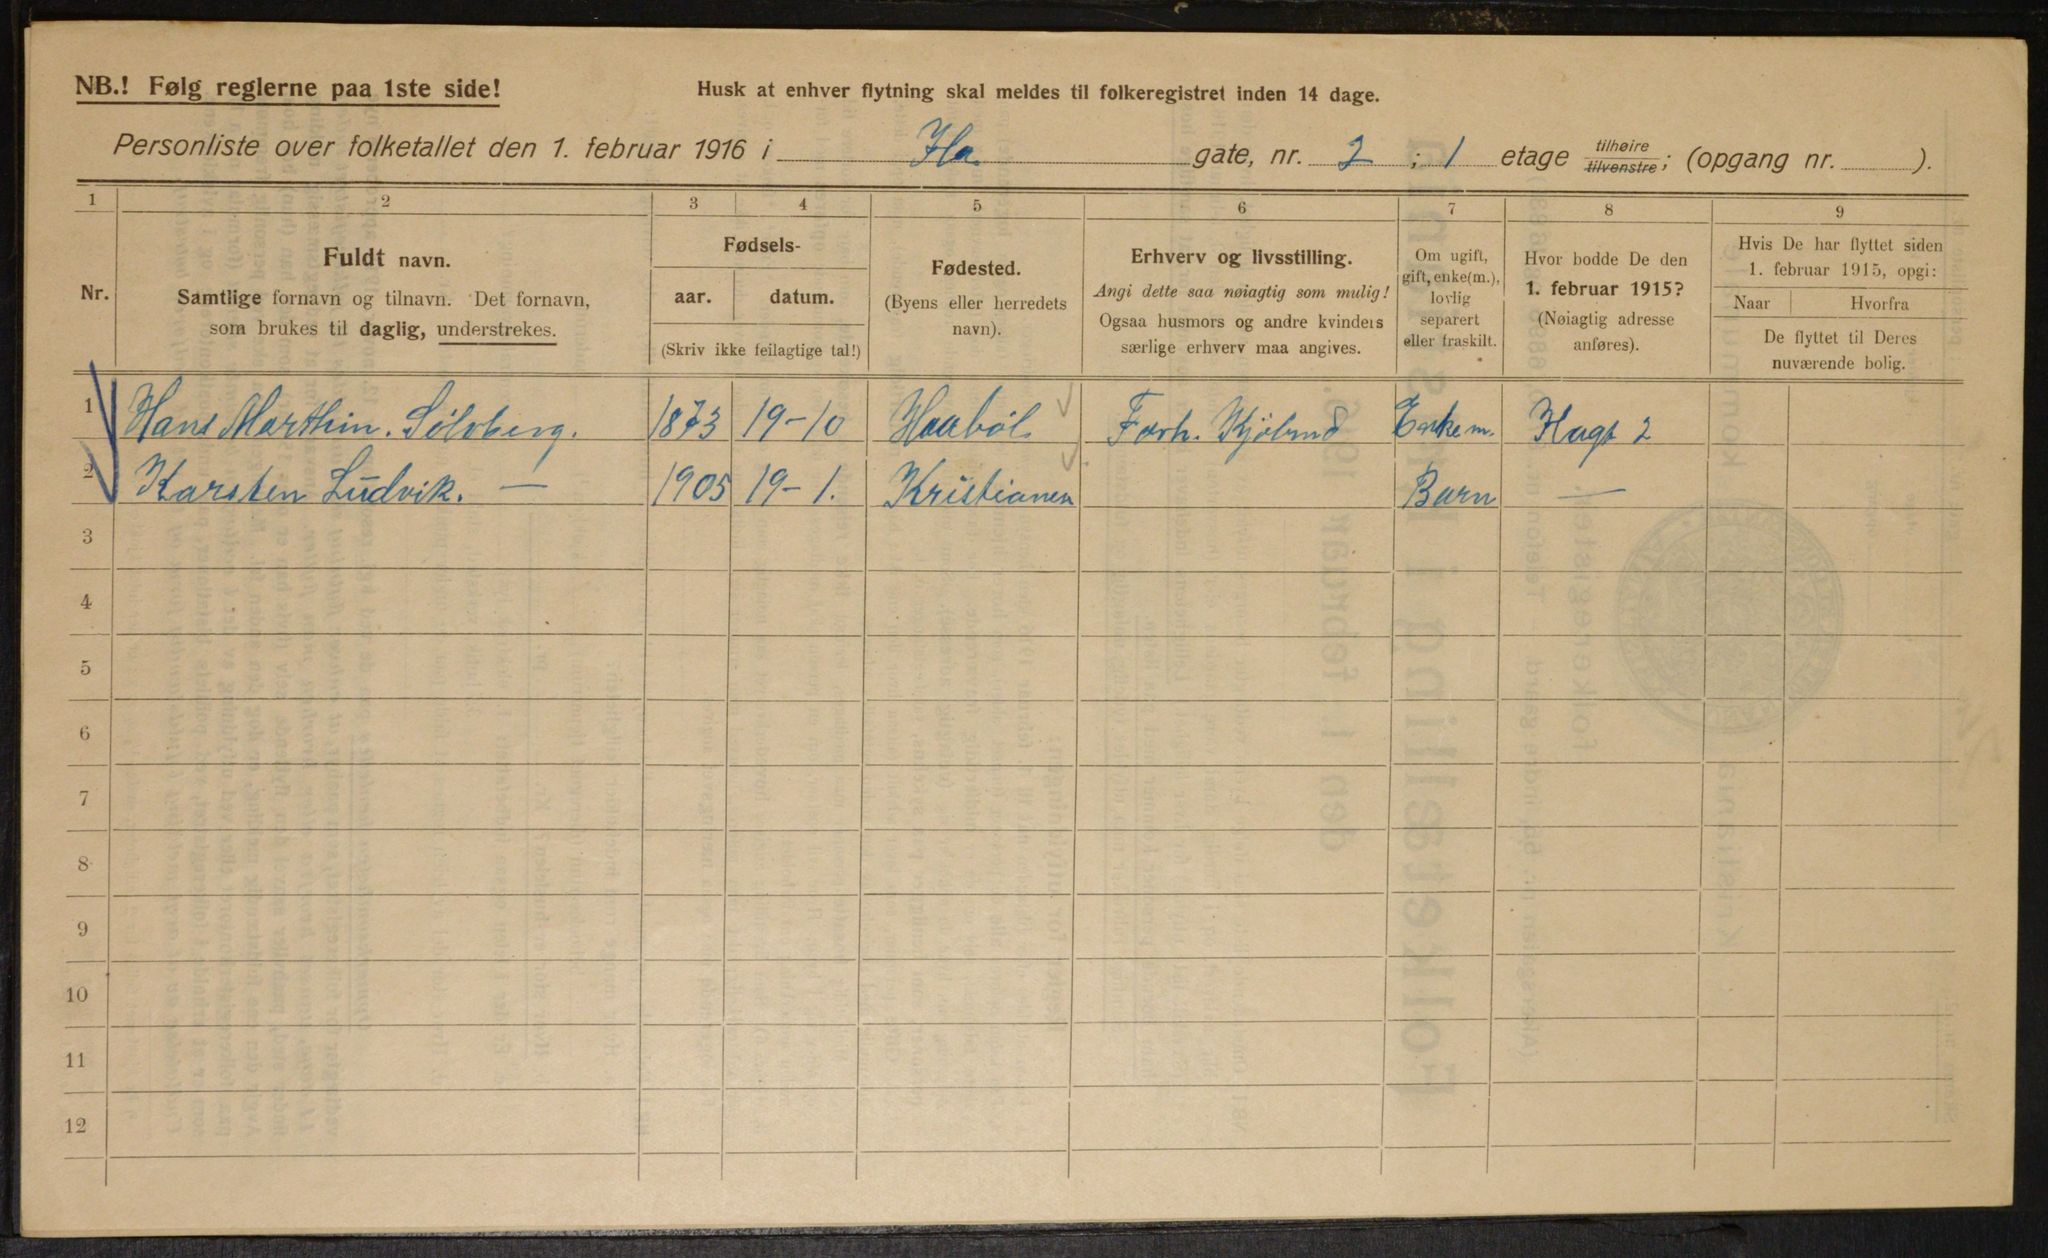 NB.! Følg reglerne paa 1ste side!
Husk at enhver flytning skal meldes til folkeregistret inden 14 dage.
Personliste over folketallet den 1. februar 1916 i Ila gate, nr. 2 ; 1 etage tilhøire tilvenstre; (opgang nr. ).
1 2 3 4 5 6 7 8 9
Nr.
Fuldt navn.
Samtlige fornavn og tilnavn. Det fornavn,
som brukes til daglig, understrekes.
Fødsels-
aar. datum.
(Skriv ikke feilagtige tal!)
Fødested.
(Byens eller herredets
navn).
Erhverv og livsstilling.
Angi dette saa nøiagtig som mulig!
Ogsaa husmors og andre kvinders
særlige erhverv maa angives.
Om ugift,
gift, enke(m.),
lovlig
separert
eller fraskilt.
Hvor bodde De den
1. februar 1915?
(Nøiagtig adresse
anføres).
Hvis De har flyttet siden
1. februar 1915, opgi:
Naar Hvorfra
De flyttet til Deres
nuværende bolig.
1 Hans Marthin. Sølvberg. 1873 19-10 Haabøl Forh. Enkem. 2
2 Karsten Ludvik. — 1905 19-1. Kristianen Barn —
3
4
5
6
7
8
9
10
11
12